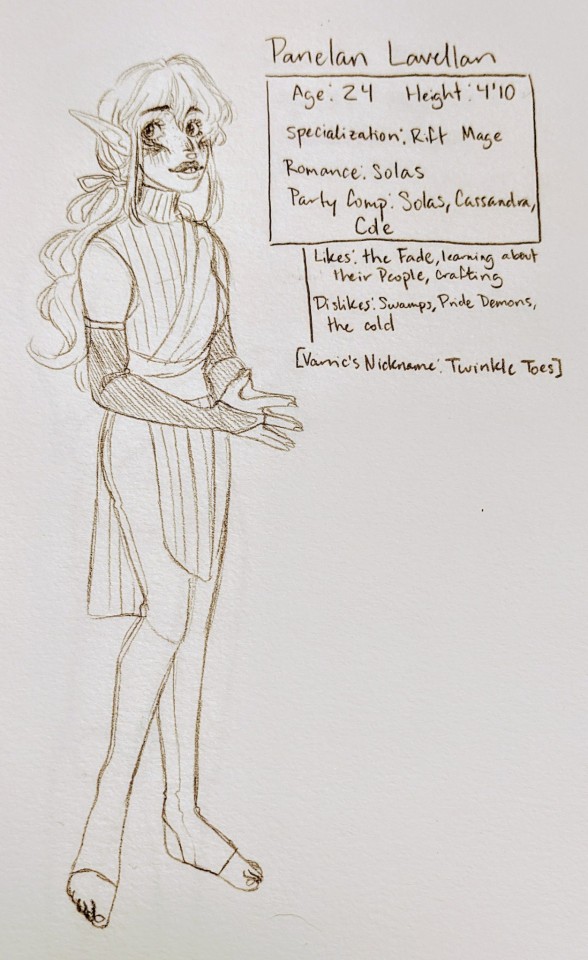 Panelan Lavellan
Age: 24 Height: 4'10
Specialization: Rift Mage
Romance: Solas
Party Comp: Solas, Cassandra,
Cole
Likes: the Fade, learning about
their People, Crafting
Dislikes: Swamps, Pride Demons,
the cold
[Varric's Nickname: Twinkle Toes]